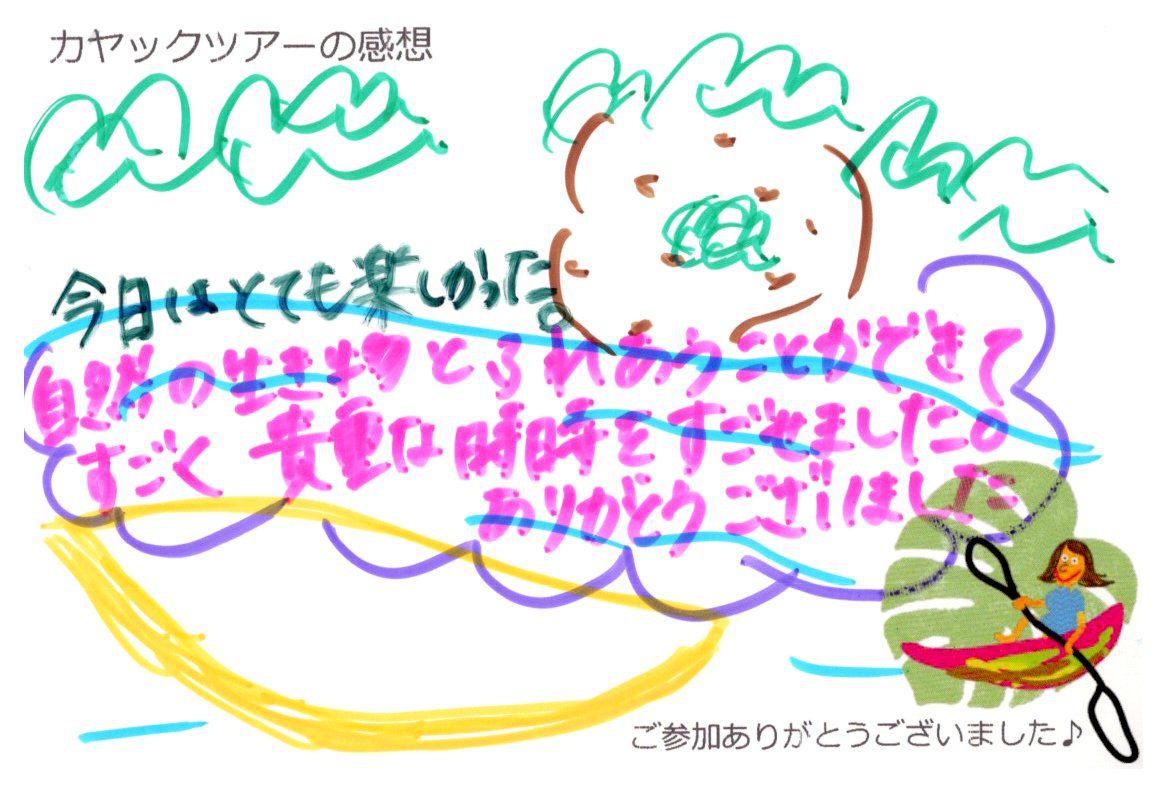 カヤックツアーの感想
今日はとても楽しかった。
自然の生き物とふれあうことができて
すごく貴重な時時をすごせました。
ありがとうございました
ご参加ありがとうございました♪